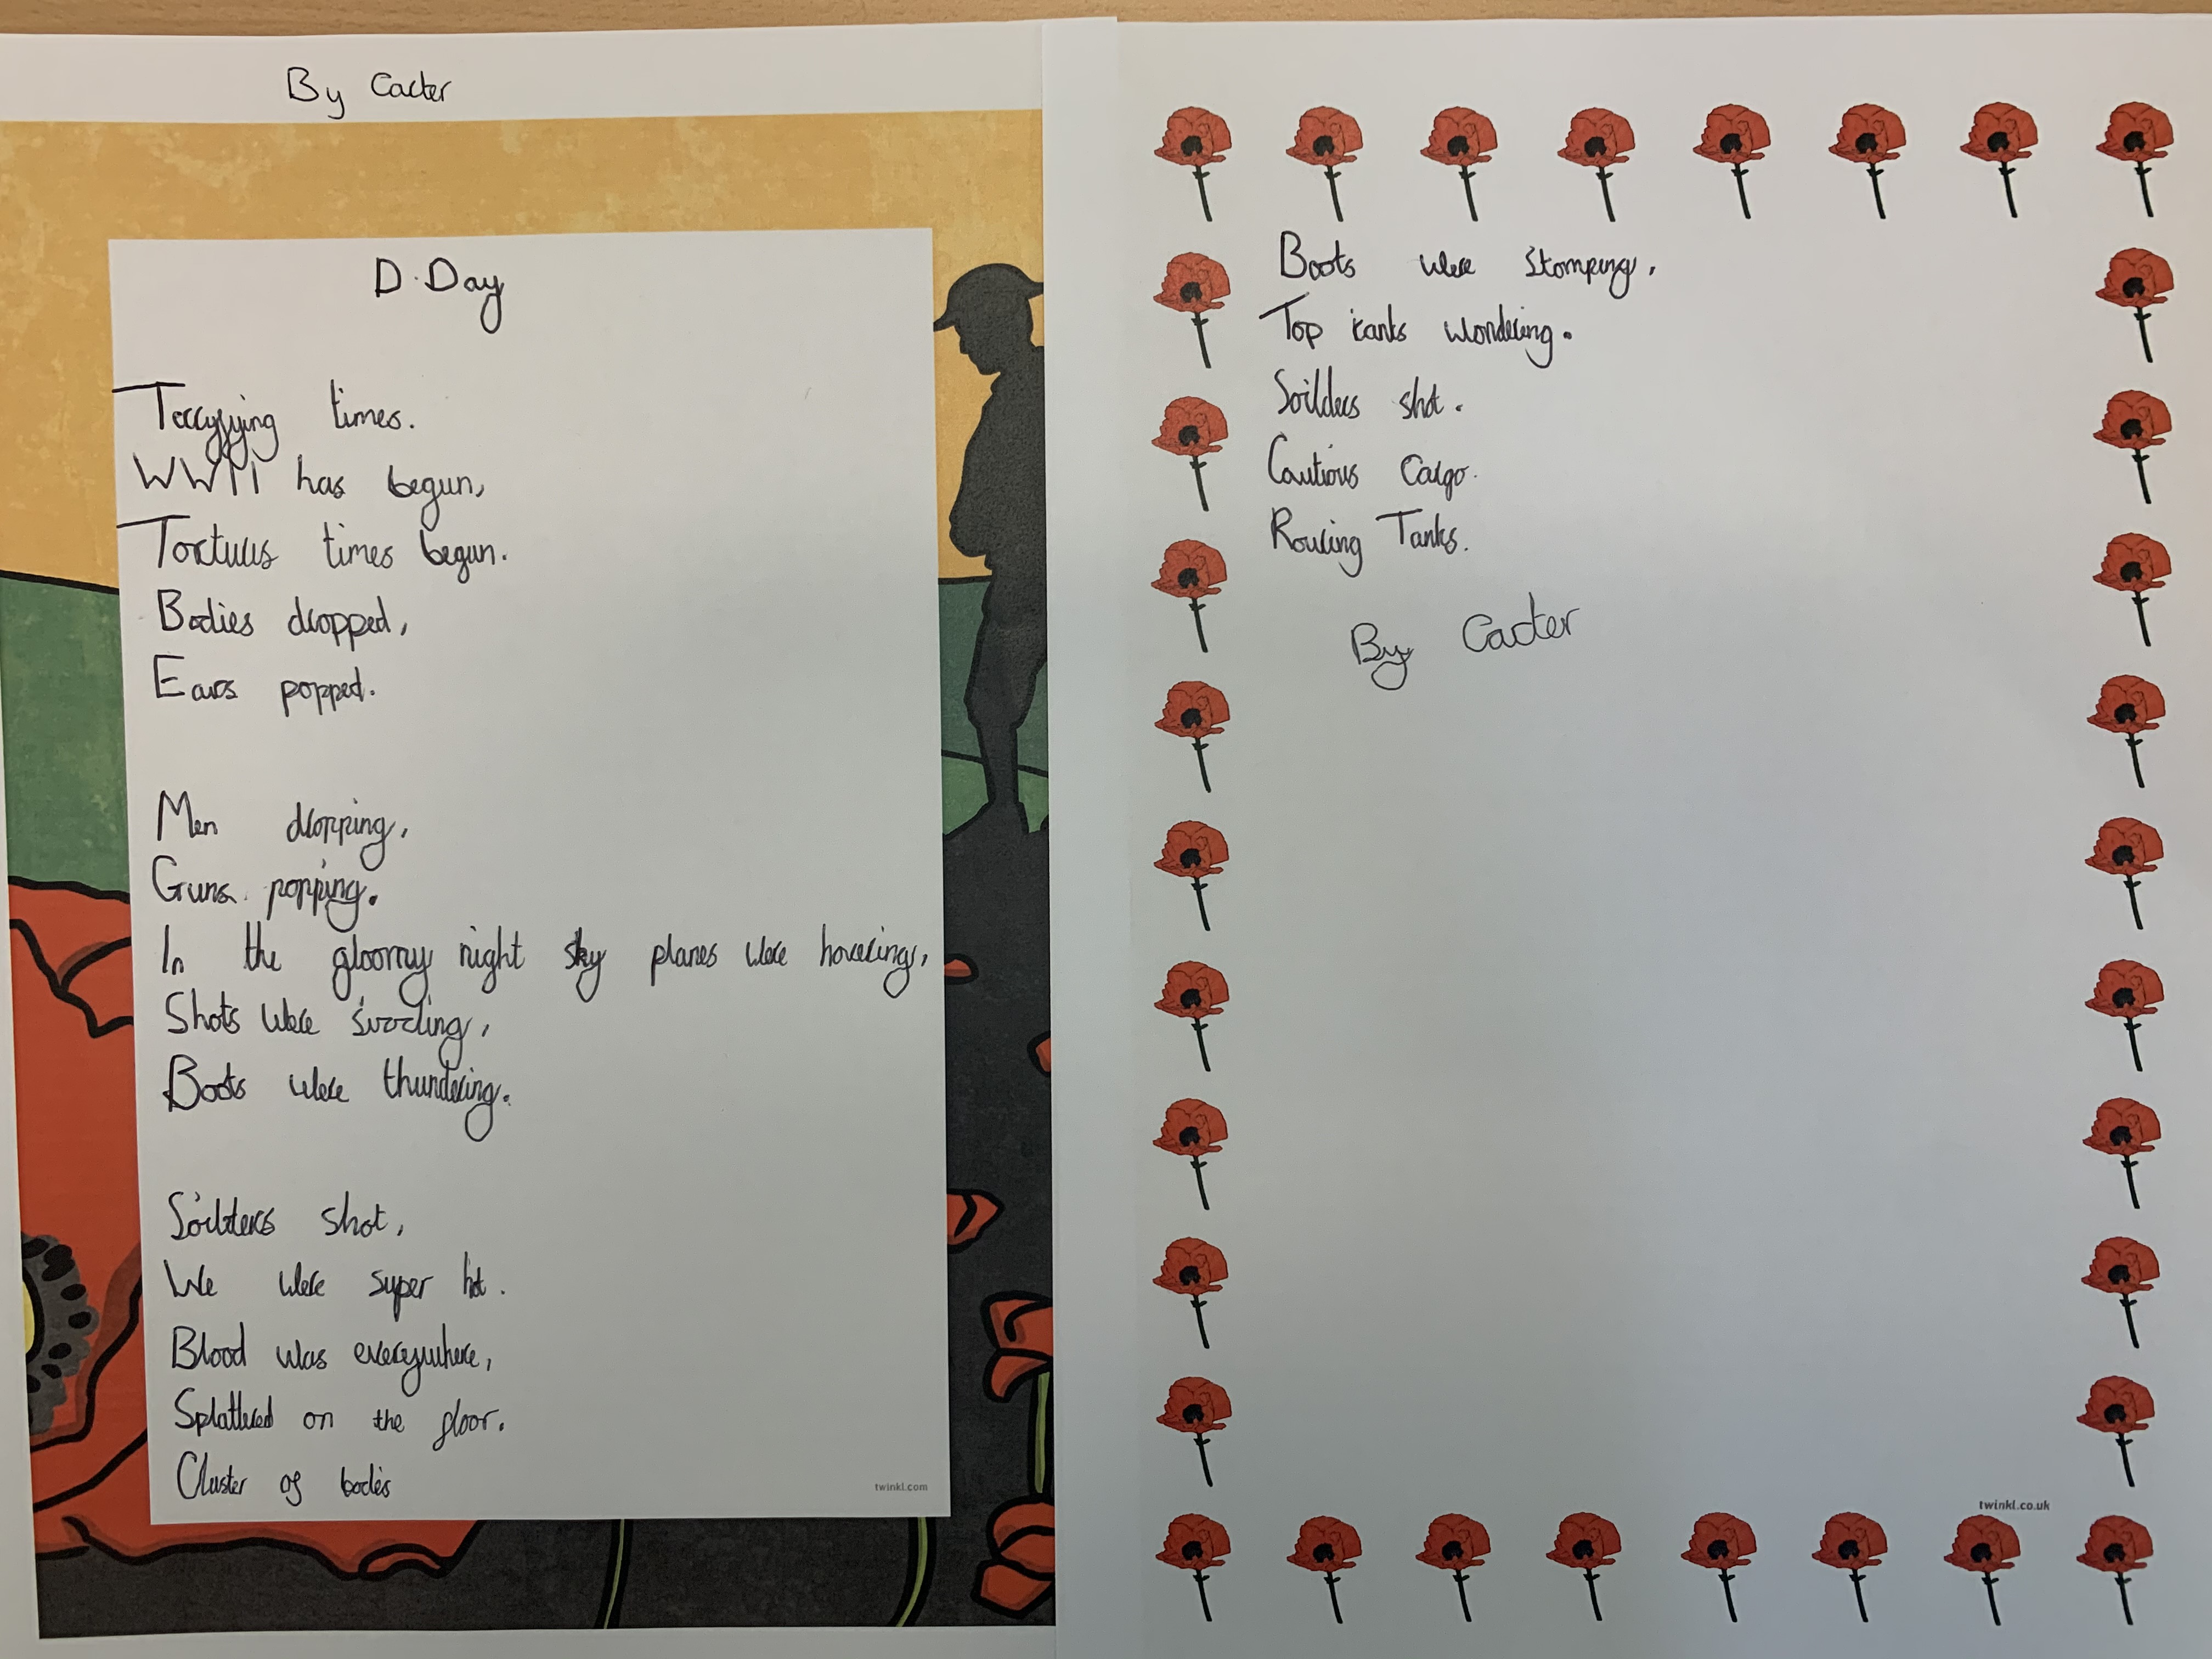 By Carter
D-Day
Terryfying times.
WWII has begun,
Torturus times begun.
Bodies dropped,
Ears popped.
Men dropping,
Guns popping.
In the gloomy night sky planes were hovering,
Shots were
Boots were thundering.
Soilders shot,
We were super hot.
Blood was everywhere,
Splattered on the floor.
Cluster of bodies
twinkl.com
Boots were stomping,
Top ranks wondering.
Soilders shot.
Cautious Cargo.
Roaring Tanks.
By Carter
twinkl.co.uk